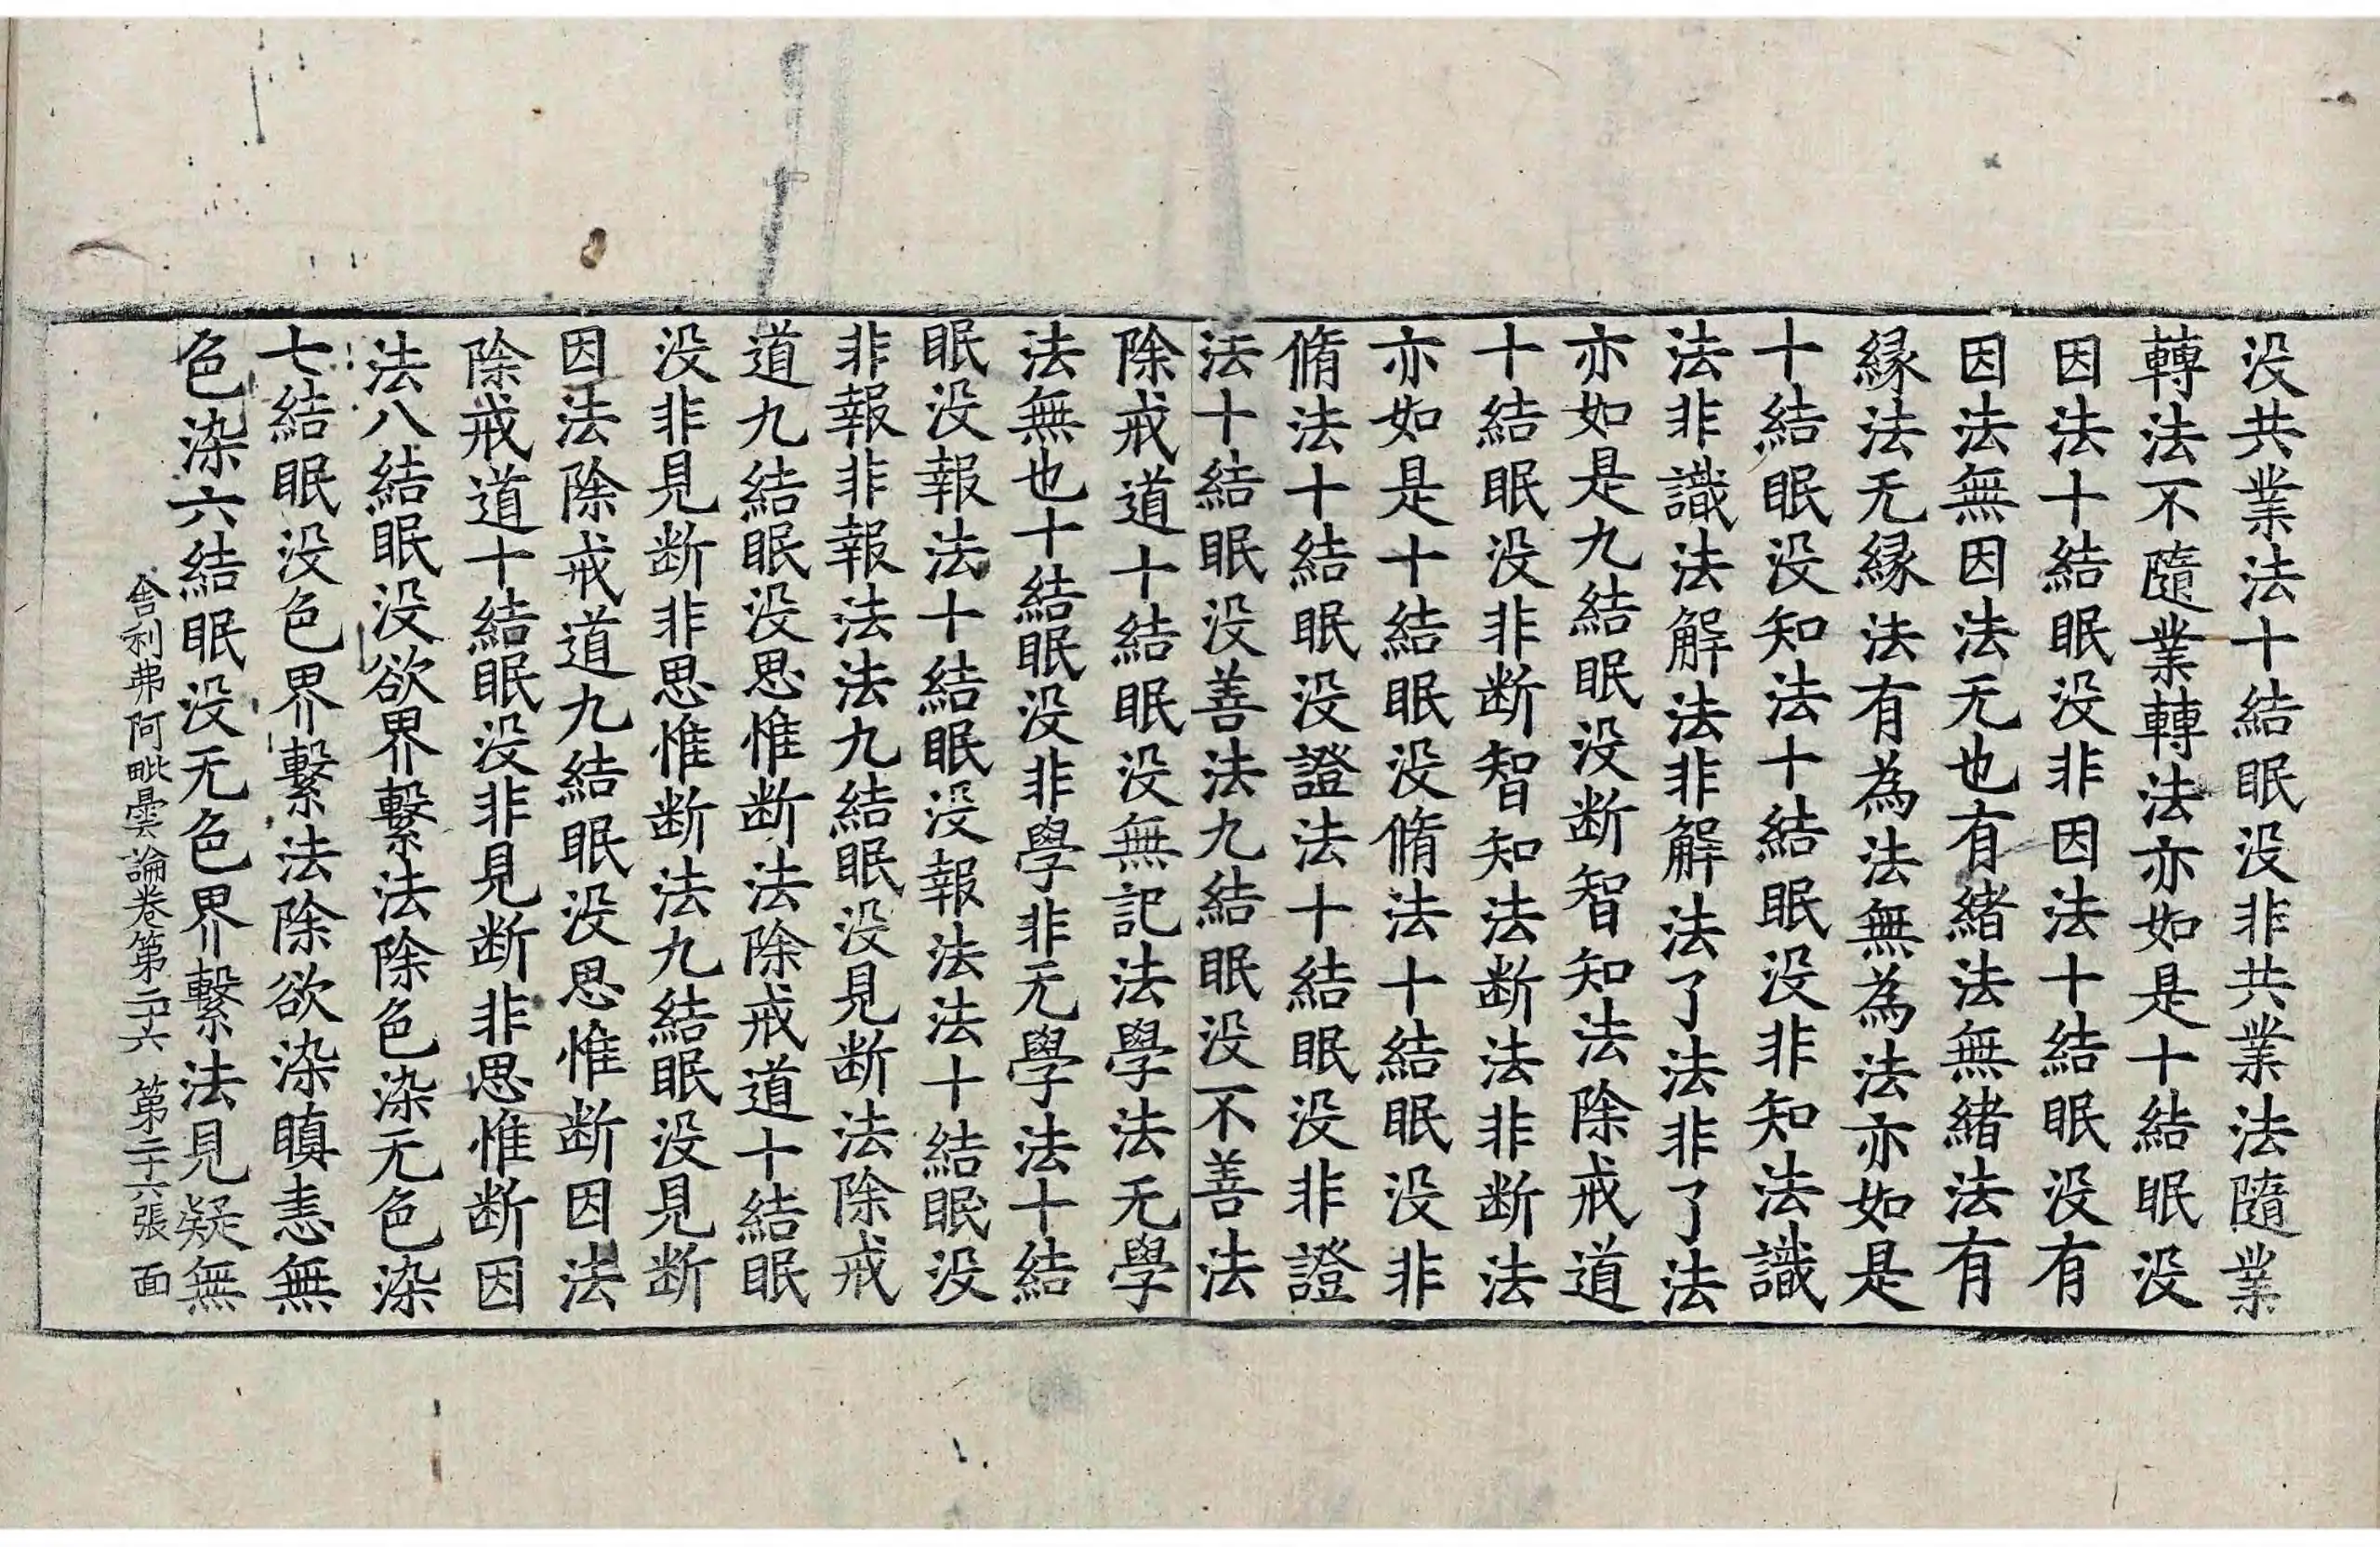 没共業法十結眠没非共業法隨業
轉法不隨業轉法亦如是十結眠没
因法十結眠没非因法十結眠没有
因法無因法无也有緒法無緒法有
縁法无縁法有為法無為法亦如是
十結眠没知法十結眠没非知法識
法非識法解法非解法了法非了法
亦如是九結眠没断智知法除戒道
十結眠没非断智知法断法非断法
亦如是十結眠没脩法十結眠没非
脩法十結眠没證法十結眠没非證
法十結眠没善法九結眠没不善法
除戒道十結眠没無記法學法无學
法無也十結眠没非學非无學法十結
眠没報法十結眠没報法法十結眠没
非報非報法法九結眠没見断法除戒
道九結眠没思惟断法除戒道十結眠
没非見断非思惟断法九結眠没見断
因法除戒道九結眠没思惟断因法
除戒道十結眠没非見断非思惟断因
法八結眠没欲界繫法除色染无色染
七結眠没色界繫法除欲染瞋恚無
色染六結眠没无色界繫法見疑無
舍利弗阿毗曇論卷第二十六 第二十六張 面